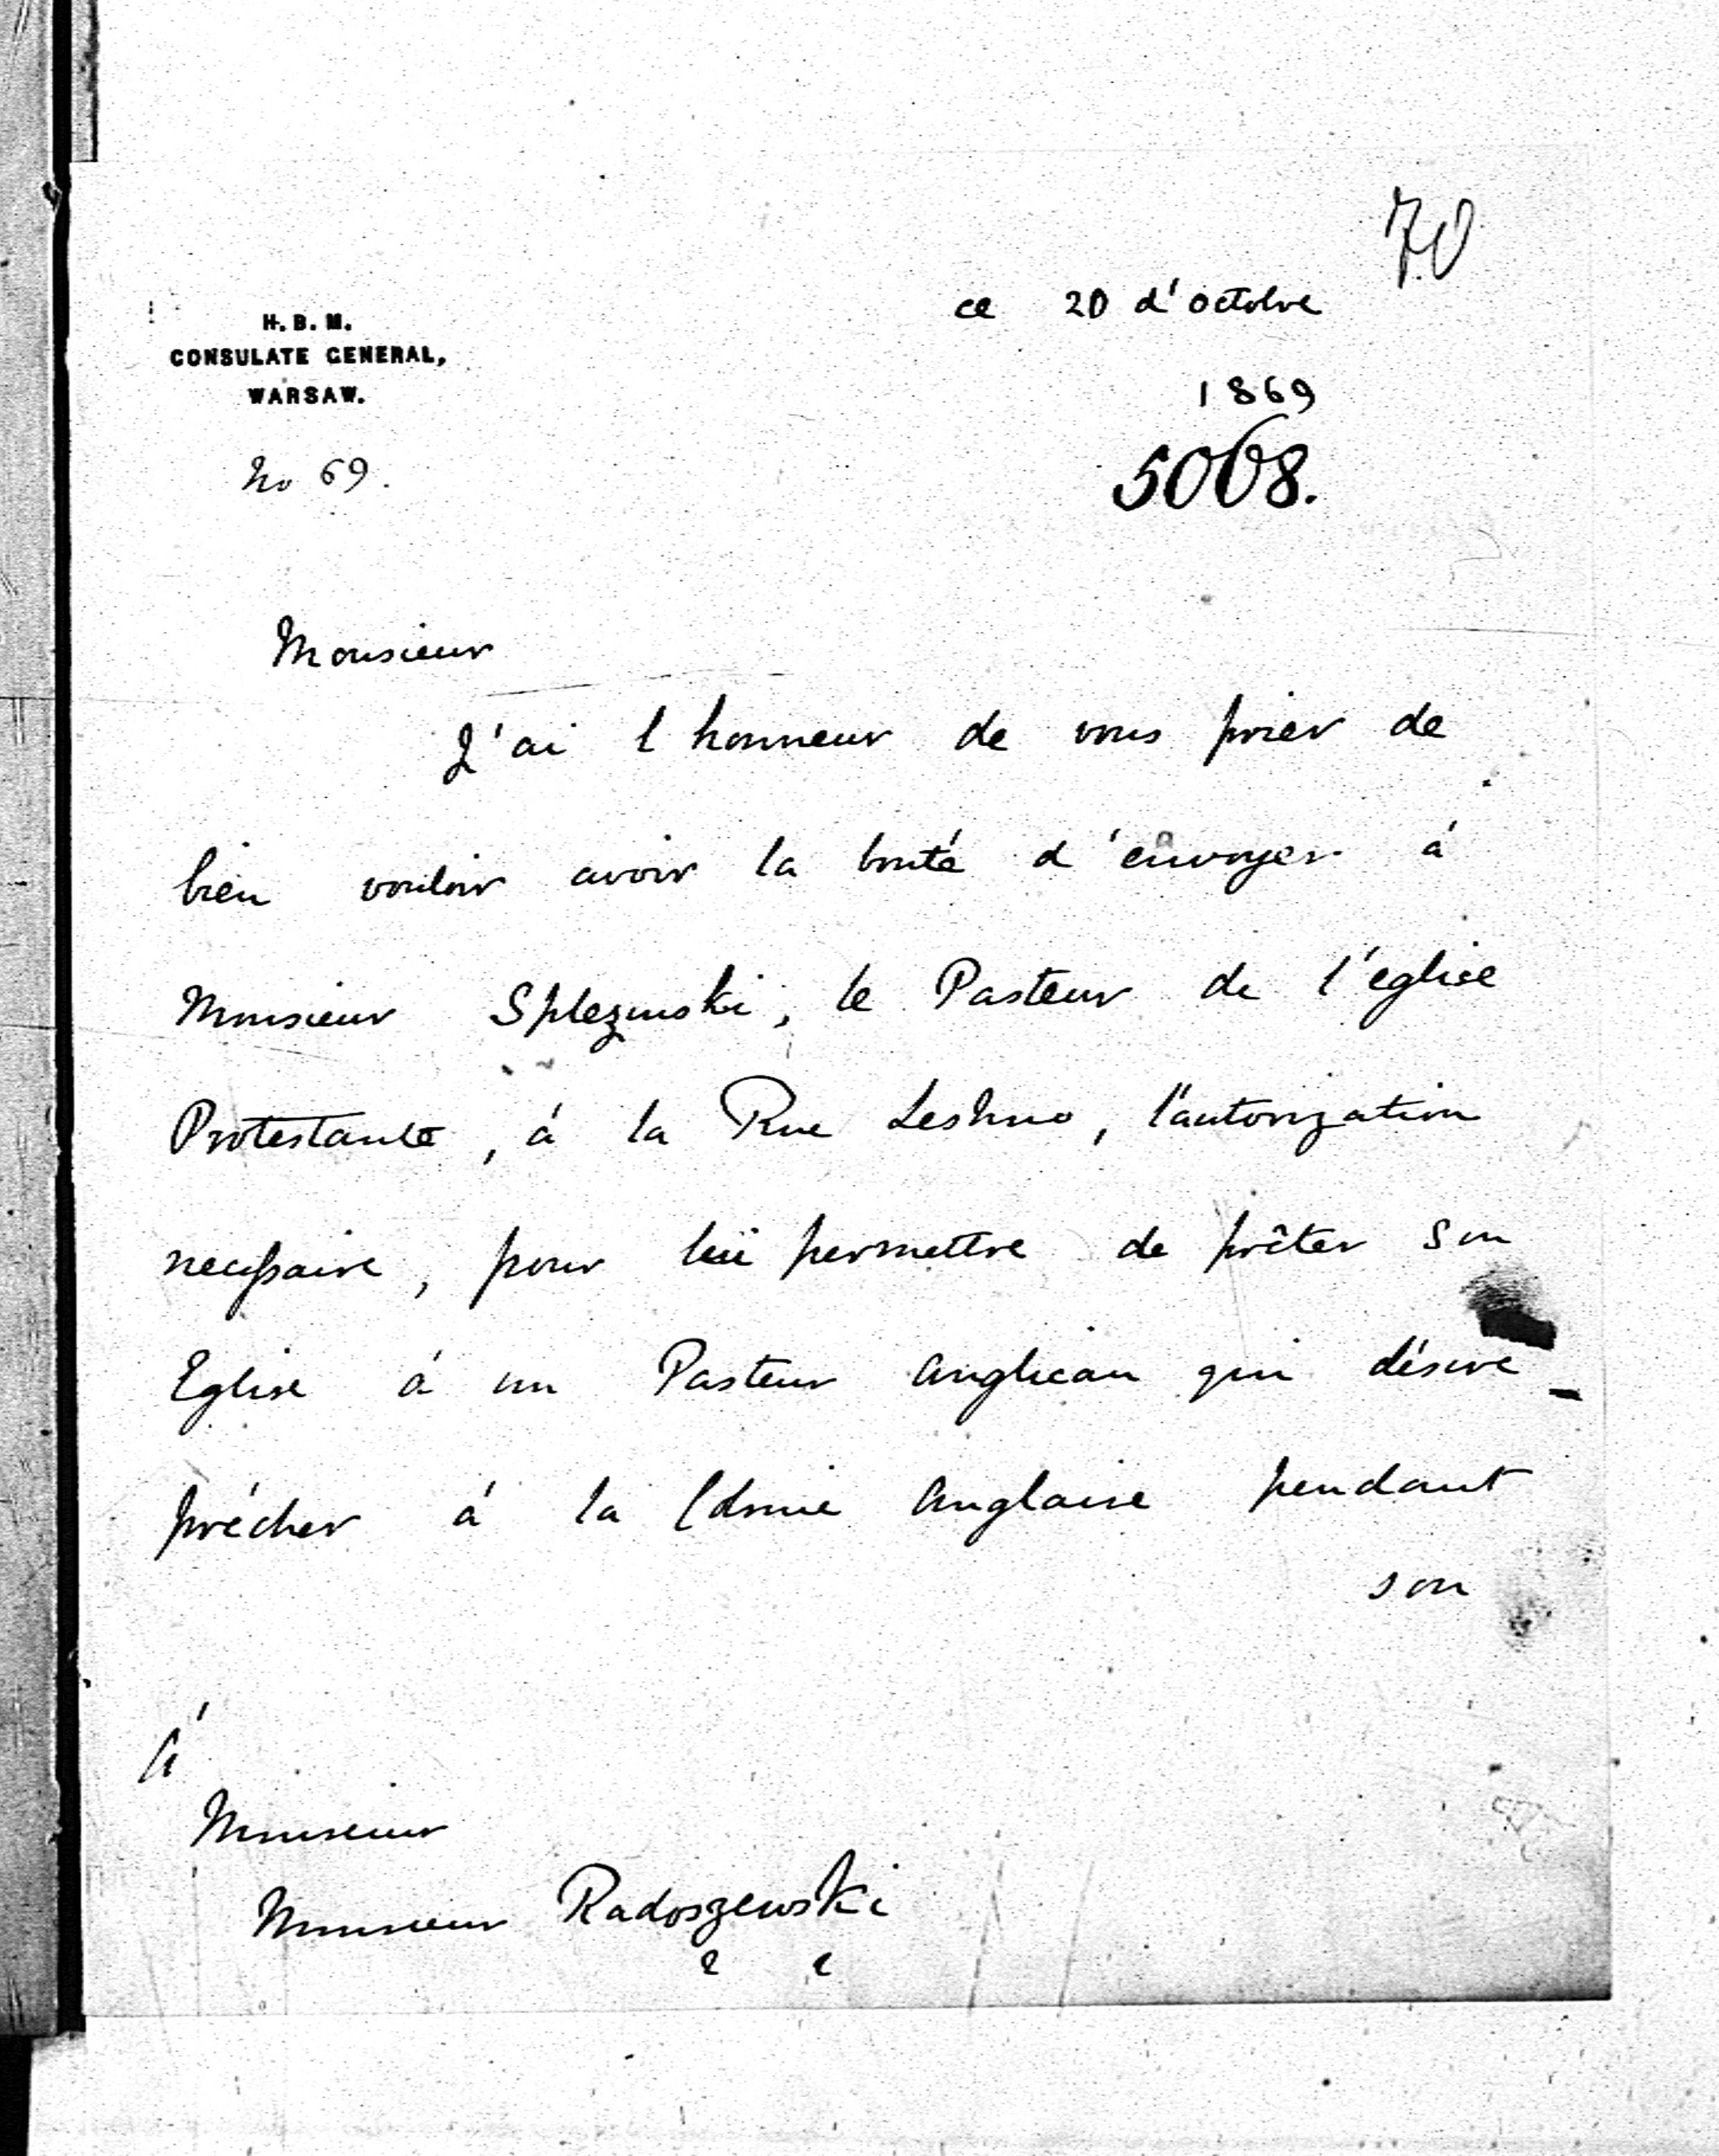 70
ce 20 d'octobre
1869
H. B. M.
CONSULATE GENERAL,
WARSAW.
No 69.
5068.
Monsieur
J'ai l honneur de vous prier de
bien vouloir avoir la bonté d'envoyer á
Monsieur Splezinski, le Pasteur de l'eglise
Protestante, á la Rue Leshno, l'autorization
necessaire, pour lui permettre de prêter son
Eglise á un Pasteur Anglican qui désire
précher á la Colonie Anglaise pendant
son
Á
Monsieur
Monsieur Radoszewski